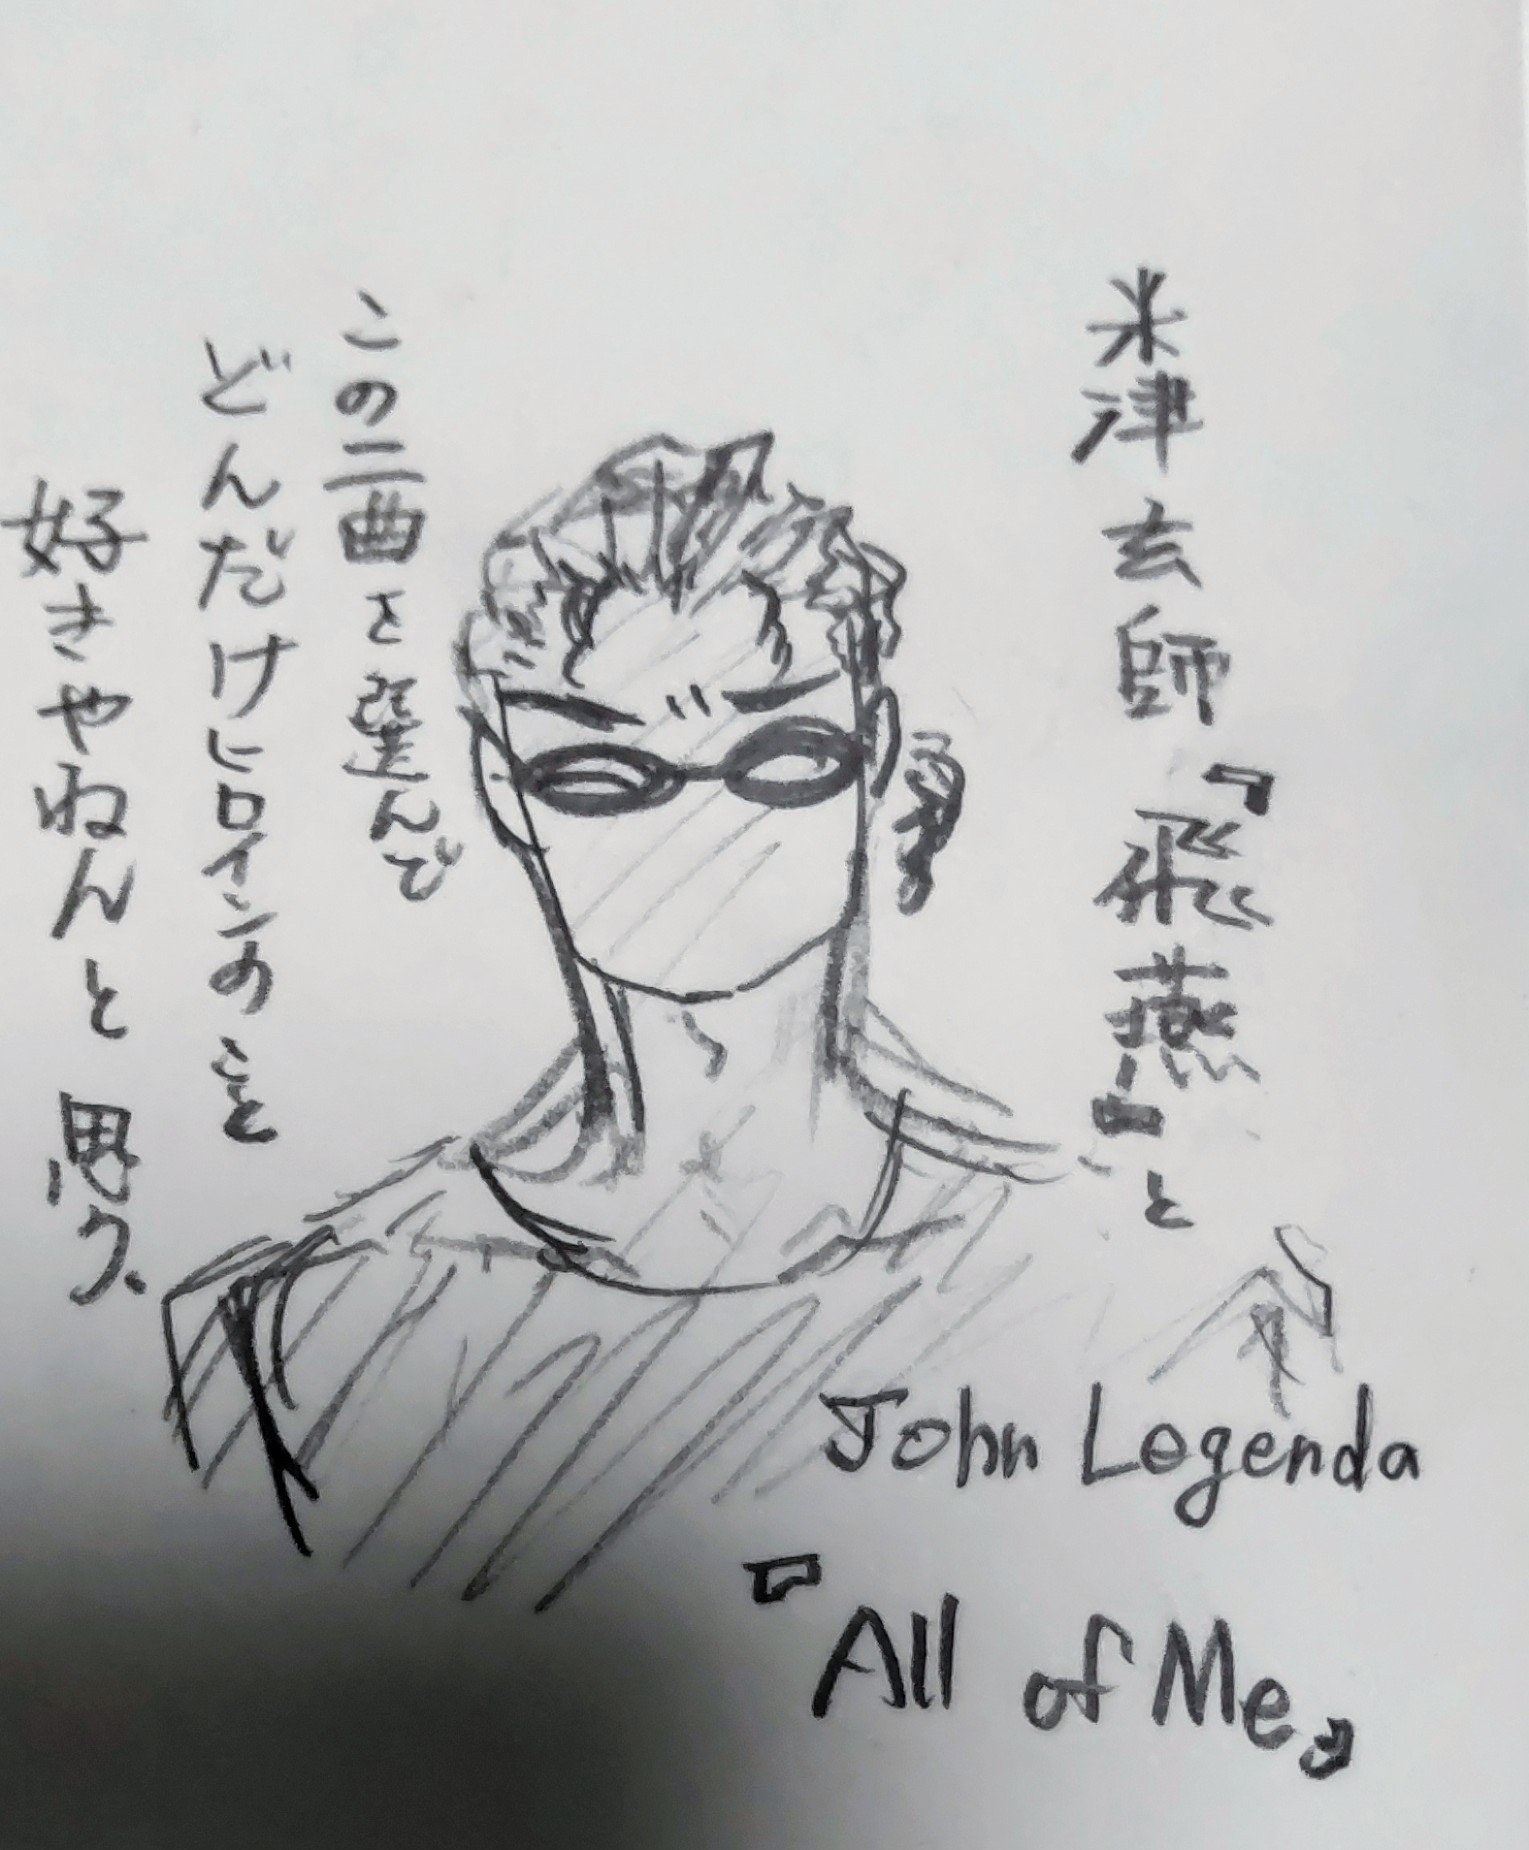 米津玄師『飛燕』と
John Legenda
『All of Me』
この二曲を選んで
どんだけヒロインのこと
好きやねんと思う、